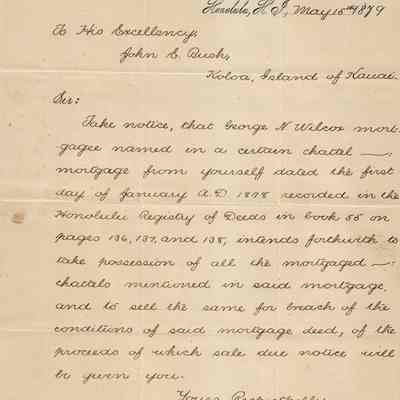 Honolulu, H I, May 15th 1879
To His Excellency,
John E. Bush,
Koloa, Island of Kauai.
Sir:
Take notice, that George N Wilcox mort-
gagee named in a certain chattal —
mortgage from yourself dated the first
day of January A.D 1878 recorded in the
Honolulu Registry of Deeds in book 55 on
pages 136, 137, and 138, intends forthwith to
take possession of all the mortgaged —
chattals mentioned in said mortgage,
and to sell the same for breach of the
conditions of said mortgage deed, of the
proceeds of which sale due notice will
be given you.
Yours Respectfully